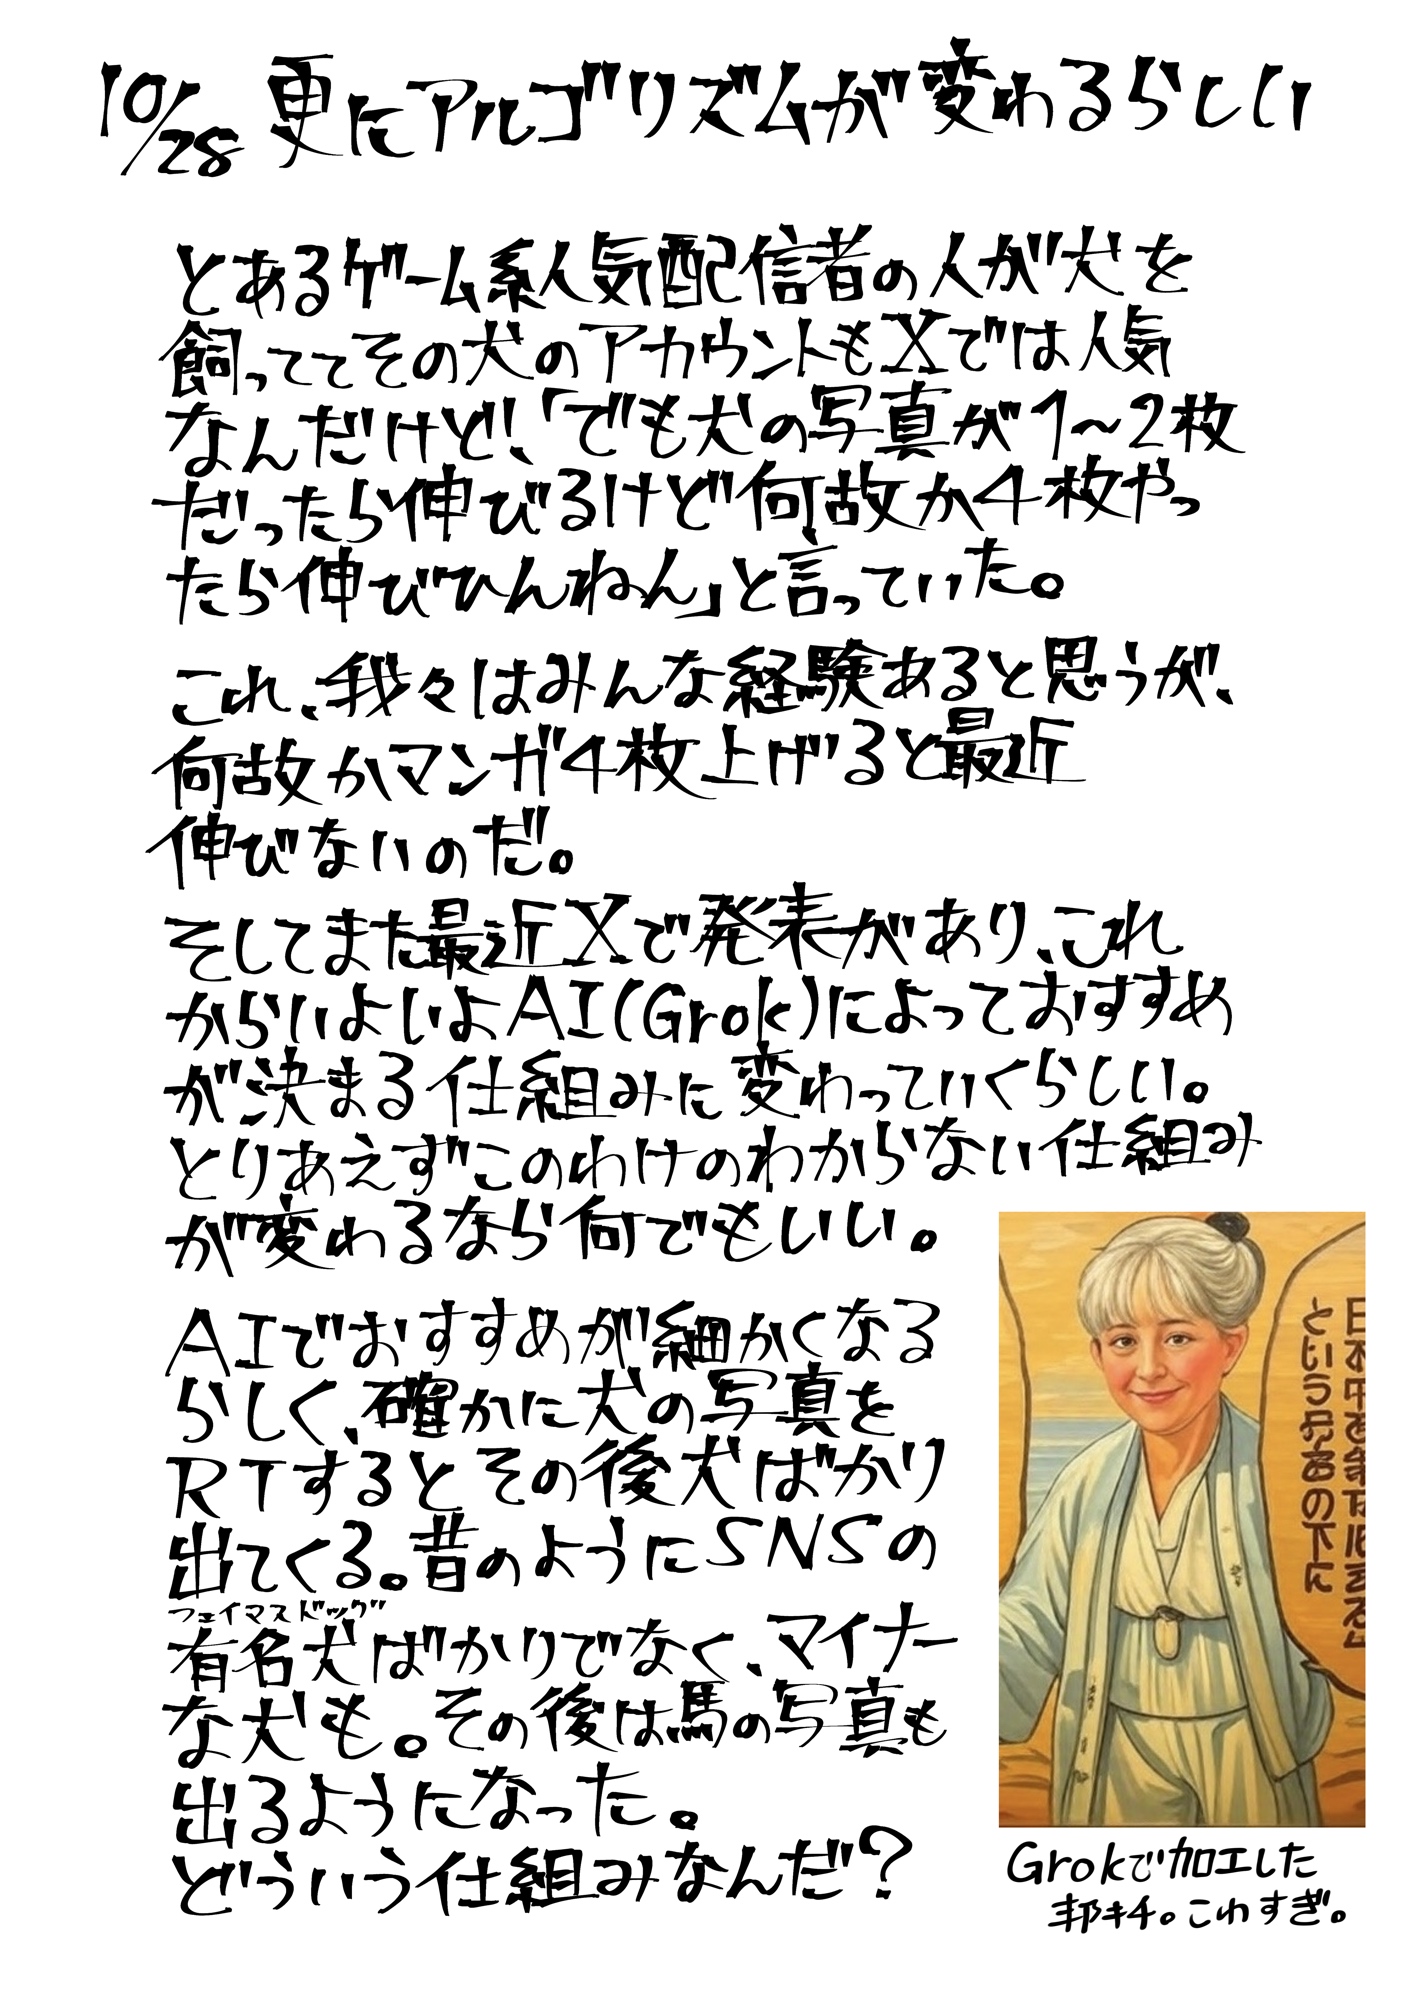 10/28 更にアルゴリズムが変わるらしい
とあるゲーム系人気配信者の人が犬を
飼っててその犬のアカウントもXでは人気
なんだけど、「でも犬の写真が1〜2枚
だったら伸びるけど何故か4枚やっ
たら伸びひんねん」と言っていた。
これ、我々はみんな経験あると思うが、
何故かマンガ4枚上げると最近
伸びないのだ。
そしてまた最近Xで発表があり、これ
からいよいよAI(Grok)によっておすすめ
が決まる仕組みに変わっていくらしい。
とりあえずこのわけのわからない仕組み
が変わるなら何でもいい。
AIでおすすめが細かくなる
らしく、確かに犬の写真を
RTするとその後犬ばかり
出てくる。昔のようにSNSの
フェイマスドッグ
有名犬ばかりでなく、マイナー
な犬も。その後は馬の写真も
出るようになった。
どういう仕組みなんだ?
という
の下に
Grokで加工した
邦キチ。こわすぎ。